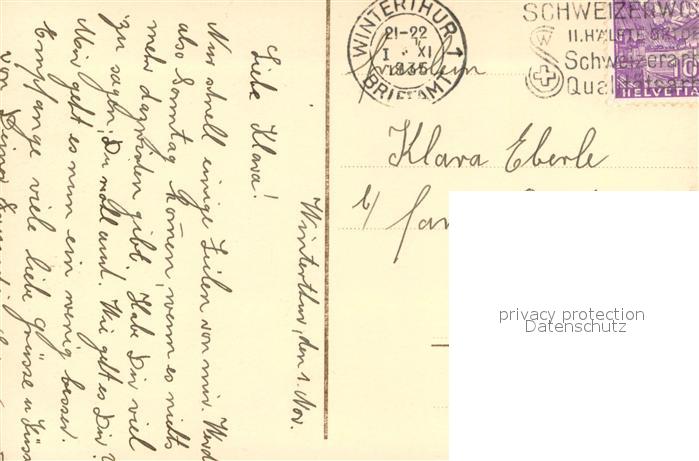 Winterthur, den 1. Nov.
Liebe Klara!
Nur schnell einige Zeilen von mir. Werd
also Sonntag kommen, wenn es nichts
mehr dazwischen gibt. Habe Dir viel
zu sagen, Du wohl auch. Wie geht es Dir?
Mir geht es nun ein wenig besser.
Empfange viele liebe Grüsse u. Küsse
von Deiner
WINTERTHUR 1
21-22
I XI
1935
BRIEFAMT
SCHWEIZERWO
II. HÄLFTE OKTOB
Schweizerar
Qualitätsar
10
HELVETIA
Fräulein
Klara Eberle
b/
privacy protection
Datenschutz